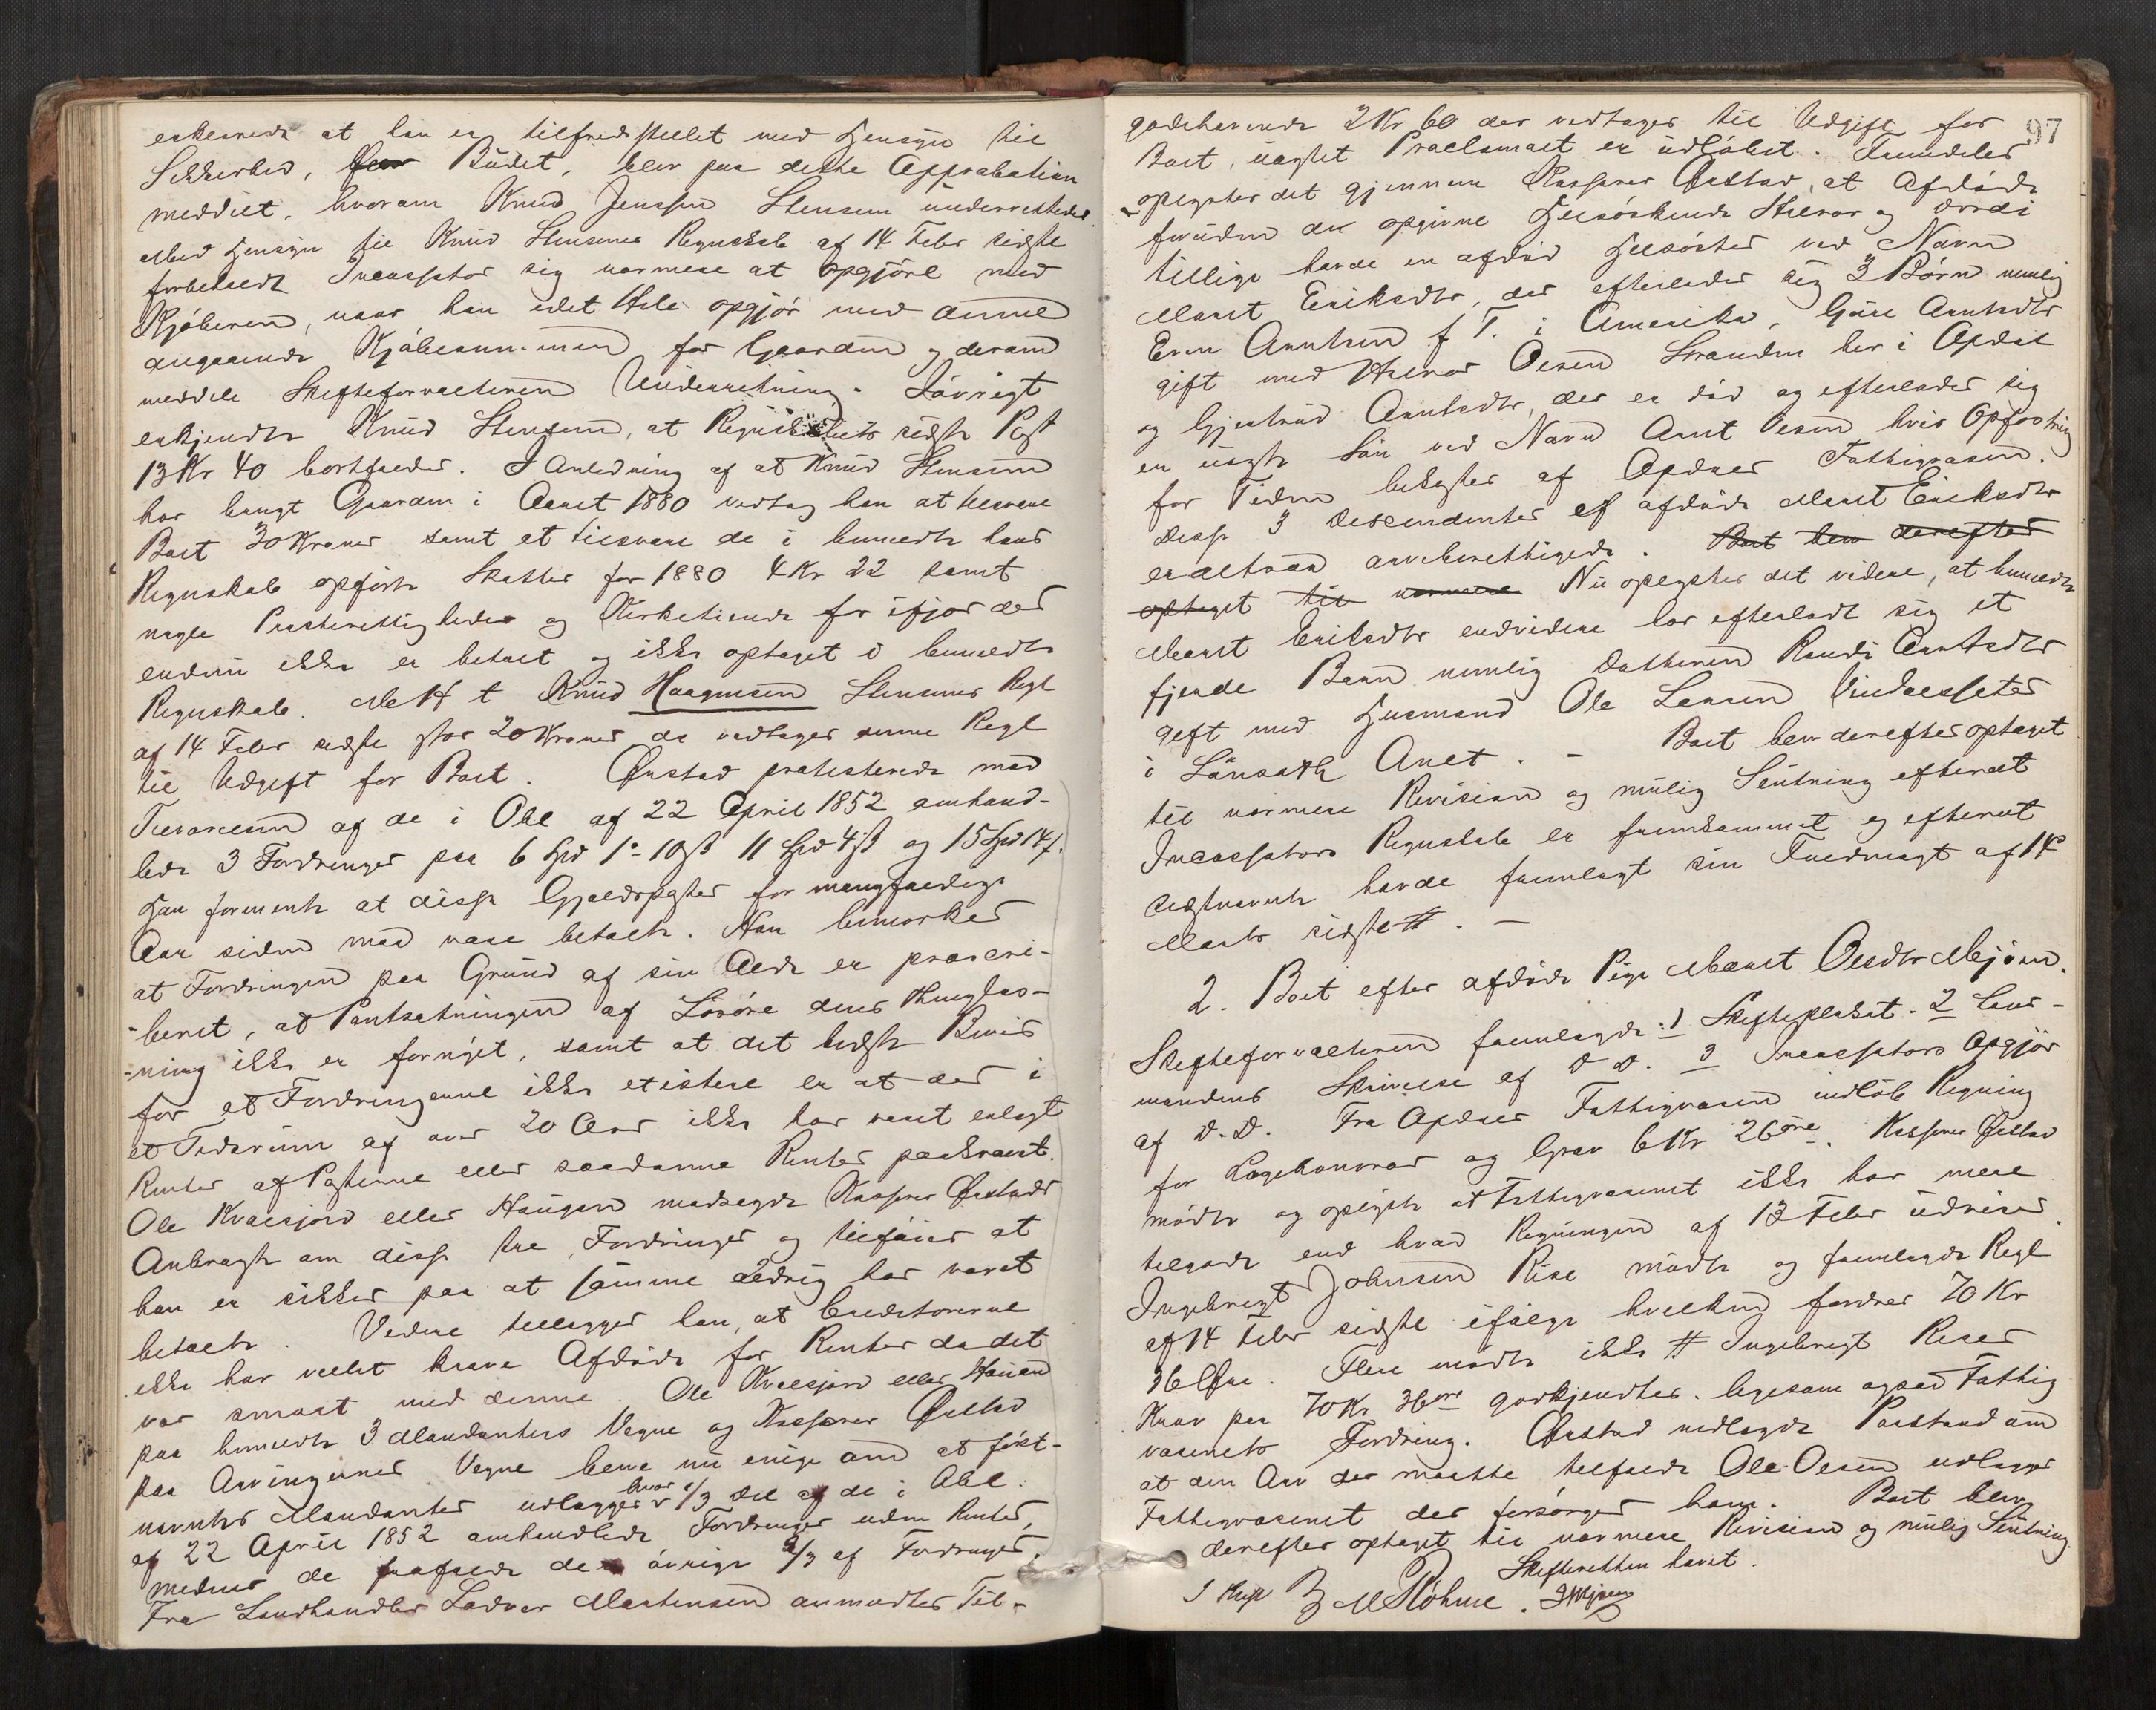 erklærede at han er tilfredsstillet med Hensyn til
Sikkerhed, Budet, blev paa dette Approbation
meddelt, hvorom Knud Jenssen Stensem underrettedes.
Med Hensyn til Knud Stensems Regnskab af 14 Febr sidste
forbeholdt Incassator sig nærmere at opgjöre med
Kjöberen, naar han idet Hele opgjör med denne
angaaende Kjöbesummen for Gaarden og derom
meddele Skifteforvalteren Underretning. Iövrigt
erkjendte Knud Stensem, at Regnskabets sidste Post
13 Kr 40 bortfalder. I Anledning af at Knud Stensem
har brugt Gaarden i Aaret 1880 vedtog han at tilsvare
Boet 30 Kroner samt at tilsvare de i bemeldte hans
Regnskab opförte Skatter for 1880 4 Kr 22 samt
nogle Presterettigheder og Kirketiende for ifjor der
endnu ikke er betalt og ikke optaget i bemeldte
Regnskab. Knud Haagensen Stensems Regl
af 14 Febr sidste stor 20 Kroner da vedtages denne Regl
til Udgift for Boet. Ørstad protesterede mod
Tilsvarelsen af de i Obl af 22 April 1852 omhand-
lede 3 Fordringer paa 6 Spd 1 - 10 ß 11 Spd 4 ß og 15 Spd 14 ß.
Han formente at disse Gjældsposter for mangfoldige
Aar siden maa være betalt. Han bemærker
at Fordringen paa Grund af sin Ælde er præscri-
-beret, at Pantsætningen af Lösöre dens Thinglæs-
-ning ikke er fornyet, samt at det bedste Bevis
for at Fordringerne ikke existere er at der i
et Tidsrum af over 20 Aar ikke har været erlagt
Renter af Posterne eller saadanne Renter paakrævet.
Ole Kvalsjord eller Haugen modsagde Kasserer Ørstads
Anbragte om disse tre Fordringer og tilföier at
han er sikker paa at samme aldrig har været
betalt. Videre tillægger han, at Creditorerne
ikke har villet kræve Afdöde for Renter da det
var smaat med denne. Ole Kvalsjord eller Haugen
paa bemeldte 3 Mandanters Vegne og Kasserer Ørstad
paa Arvingernes Vegne bleve nu enige om at först-
nævnte Mandanter udlægges hver 1/3 Del af de i Obl.
af 22 April 1852 omhandlede Fordringer uden Renter,
medens de frafalde de övrige 2/3 af Fordringer.
Fra Landhandler Ladvar Mortensen anmodtes Til-
97
godehavende 2 Kr 60 der vedtages til Udgift for
Boet, uagtet Proclamaet er udlöbet. Fremdeles
oplystes det gjennem Kasserer Ørstad, at Afdöde
foruden de opgivne Helsöskende Halvor og Ordi
tillige havde en afdöd Helsöster ved Navn
Marit Eriksdtr, der efterlader sig 3 Börn nemlig
Even Arntsen f T. i Amerika, Guri Arntsdtr
gift med Halvor Olsen Stranden her i Opdal
og Gjertrud Arntsdtr, der er död og efterlader sig
en uægte Sön ved Navn Arnt Olsen hvis Opfostring
for Tiden bekostes af Opdals Fattigvæsen.
Disse 3 Descendenter af afdöde Marit Eriksdtr
er altsaa arveberettigede. Boet blev derefter
optaget til nærmere Nu oplystes det videre, at bemeldte
Marit Eriksdtr endvidere har efterladt sig et
fjerde Barn nemlig Datteren Randi Arntsdtr
gift med Husmand Ole Larsen Vindalssæter
i Lönsæth Anet. - Boet blev derefter optaget
til nærmere Revision og mulig Slutning efterat
Incassators Regnskab er fremkommet og efterat
sidstnævnte havde fremlagt sin Fuldmagt af 14
Marts sidste. -
2. Boet efter afdöde Pige Marit Olsdtr Mjöen.
Skifteforvalteren fremlagde: 1 Skifteplakat. 2 Lens-
mandens Skrivelse af D. D. 3 Incassators Opgjör
af D. D. Fra Opdals Fattigvæsen indlöb Regning
for Lægehonorar og Grav 6 Kr 26 öre. Kasserer Ørstad
mödte og oplyste at Fattigvæsenet ikke har mere
tilgode end hvad Regningen af 13 Febr udviser.
Ingebrigt Johnsen Rise mödte og fremlagde Regl
af 14 Febr sidste ifölge hvilken fordres 70 Kr
36 Øre. Flere mödte ikke # Ingebrigt Rises
Krav paa 70 Kr 36 öre godkjendtes. ligesom ogsaa Fattig
væsenets Fordring. Ørstad nedlagde Paastand om
at den Arv der maatte tilfalde Ole Olsen udlægges
Fattigvæsenet der forsörger ham. Boet blev
derefter optaget til nærmere Revision og mulig Slutning.
Skifteretten hævet.